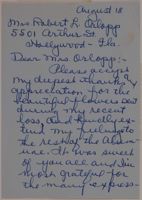 August 18
Mrs Robert L. Orlopp
5501 Arthur St.
Hollywood - Fla.
Dear Mrs. Orlopp:-
Please accept
my deepest thanks &
appreciation for the
beautiful flowers sent
during my recent
loss, and kindly ex-
tend my feelings to
the rest of the
It was sweet
of you all and I'm
most grateful for
the many express-